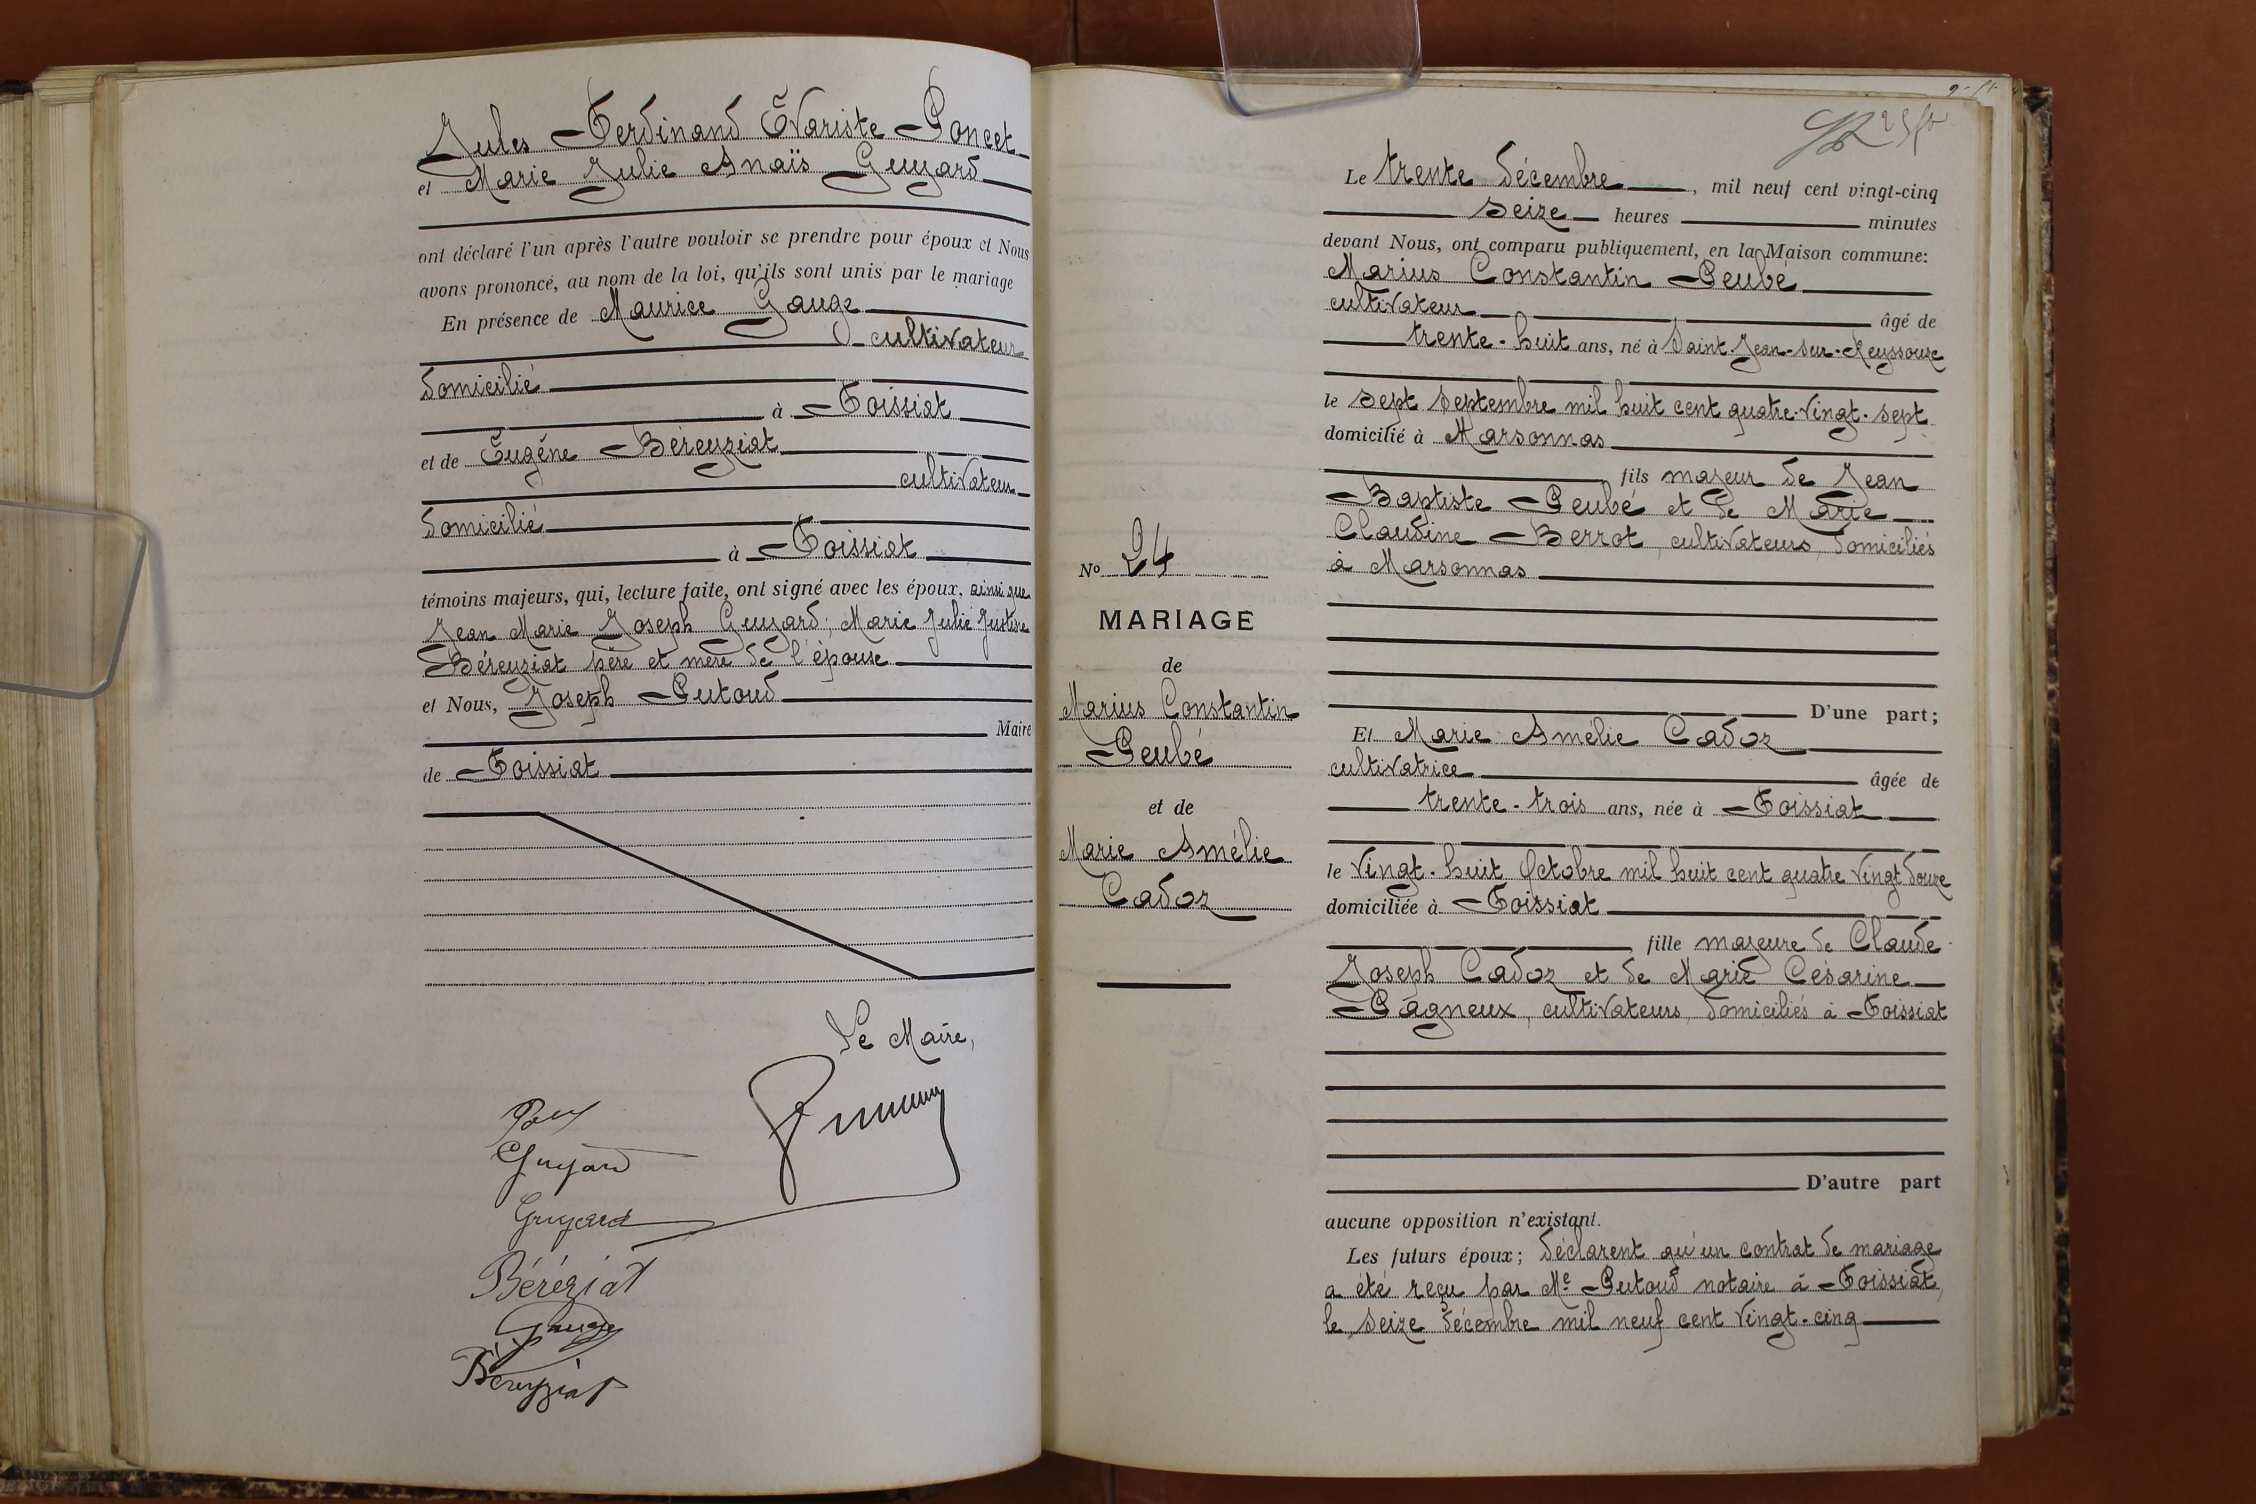 Jules Ferdinand Evariste Poncet
et Marie Julie Anaïs Guyard
ont déclaré l'un après l'autre vouloir se prendre pour époux et Nous
avons prononcé, au nom de la loi, qu'ils sont unis par le mariage
En présence de Maurice Gauge
cultivateur
domicilié
à Foissiat
et de Eugène Béreyziat
cultivateur
domicilié
à Foissiat
témoins majeurs, qui, lecture faite, ont signé avec les époux, ainsi que
Jean Marie Joseph Guyard, Marie Julie Justine
Béreyziat père et mère de l'épouse
et Nous, Joseph Putoud
Maire
de Foissiat
Le Maire,
Guyard
Guyard
Béréziat
Gauge
Béreyziat
Le trente décembre, mil neuf cent vingt-cinq
seize heures minutes
devant Nous, ont comparu publiquement, en la Maison commune:
Marius Constantin Peubé
cultivateur âgé de
trente-huit ans, né à Saint-Jean-sur-Reyssouze
le sept septembre mil huit cent quatre-vingt-sept
domicilié à Marsonnas
fils majeur de Jean
Baptiste Peubé et de Marie
Claudine Berrot, cultivateurs, domiciliés
à Marsonnas
D'une part;
Et Marie Amélie Cadoz
cultivatrice âgée de
trente-trois ans, née à Foissiat
le vingt-huit Octobre mil huit cent quatre vingt douze
domiciliée à Foissiat
fille majeure de Claude
Joseph Cadoz et de Marie Césarine
Pagneux, cultivateurs, domiciliés à Foissiat
D'autre part
aucune opposition n'existant.
Les futurs époux; déclarent qu'un contrat de mariage
a été reçu par Me Putoud notaire à Foissiat,
le seize décembre mil neuf cent vingt-cinq
No 24
MARIAGE
de
Marius Constantin
Peubé
et de
Marie Amélie
Cadoz